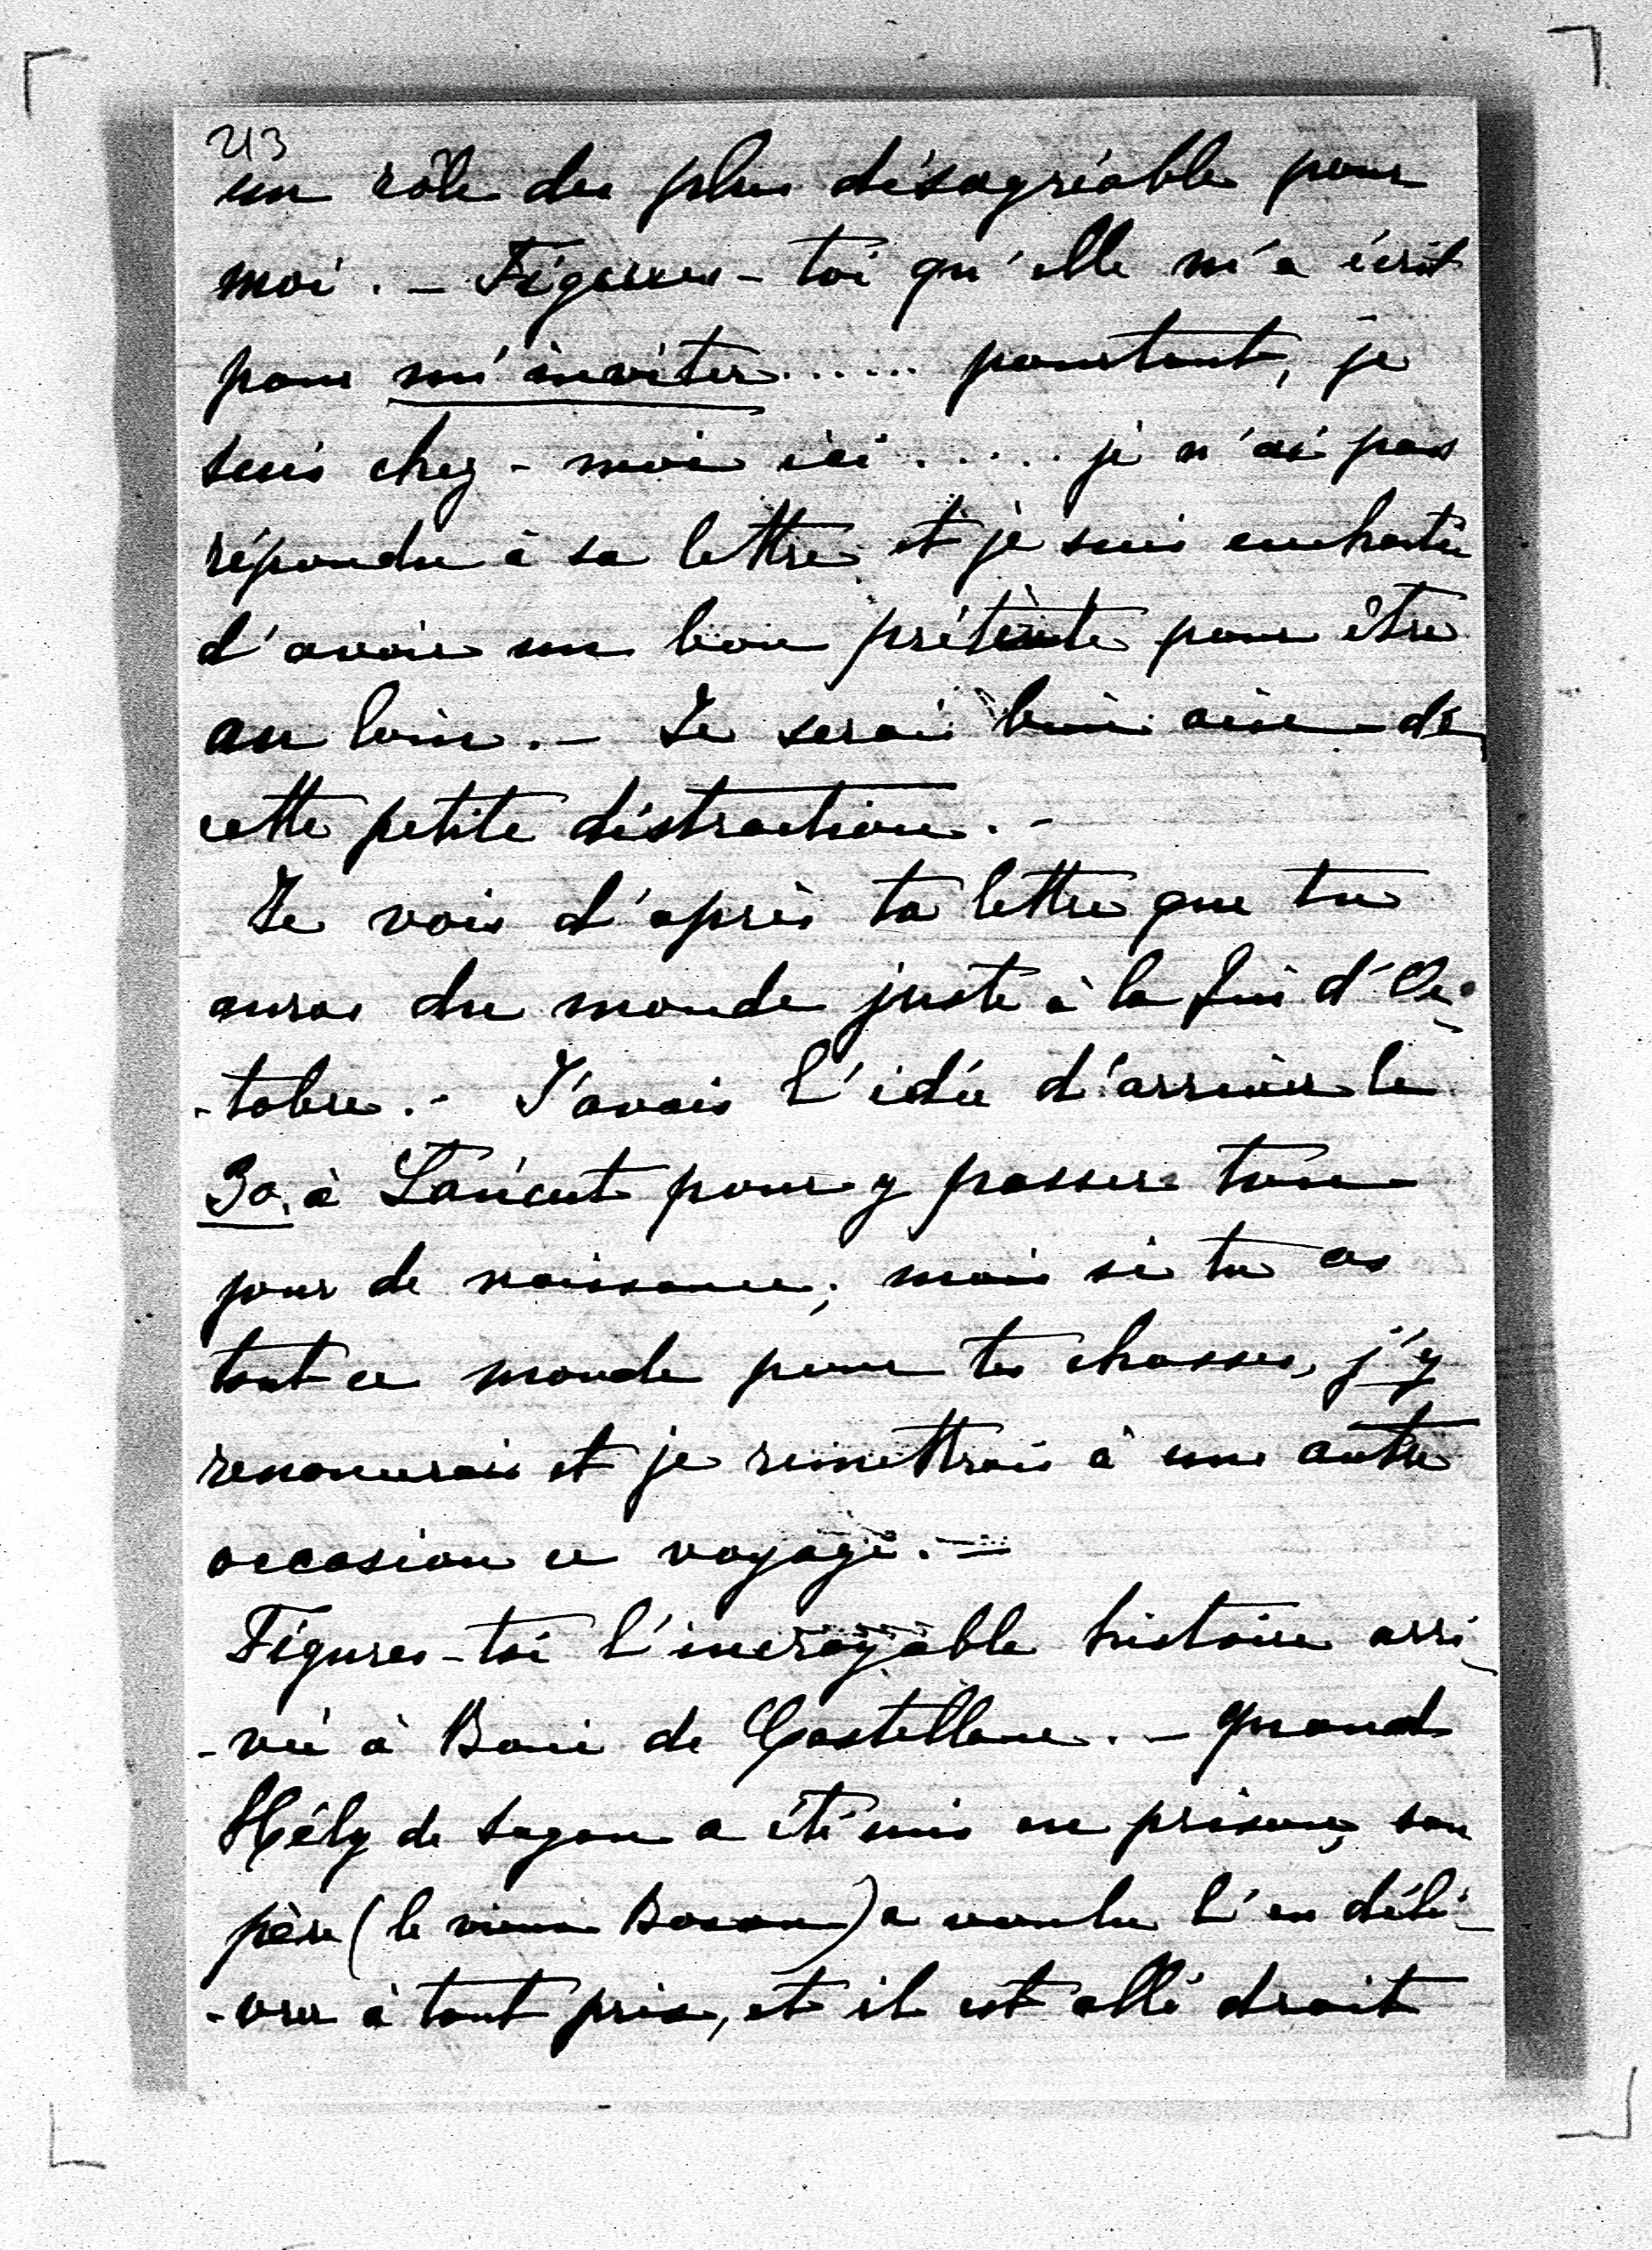 213
un rôle des plus désagréable pour
moi. – Figures-toi qu'elle m'a écrit
pour m'inviter...... pourtant, je
suis chez-moi ici ..... je n'ai pas
répondu à sa lettre et je suis enchantée
d'avoir un bon prétexte pour être
au loin. – Je serai bien aise de
cette petite distraction. -
Je vois d'après ta lettre que tu
auras du monde juste à la fin d'Oc-
-tobre. - J'avais l'idée d'arriver le
30. à Łańcut pour y passer ton
jour de naissance; mais si tu as
tout ce monde pour tes chasses, j'y
renoncerais et je remettrais à une autre
occasion ce voyage. –
Figures-toi l'incroyable histoire arri-
-vée à Boni de Castellane. – quand
Hély de Sagan a été mis en prison, son
père (le vieux Boson) a voulu l'en déli-
-vrer à tout prix, et il est allé droit